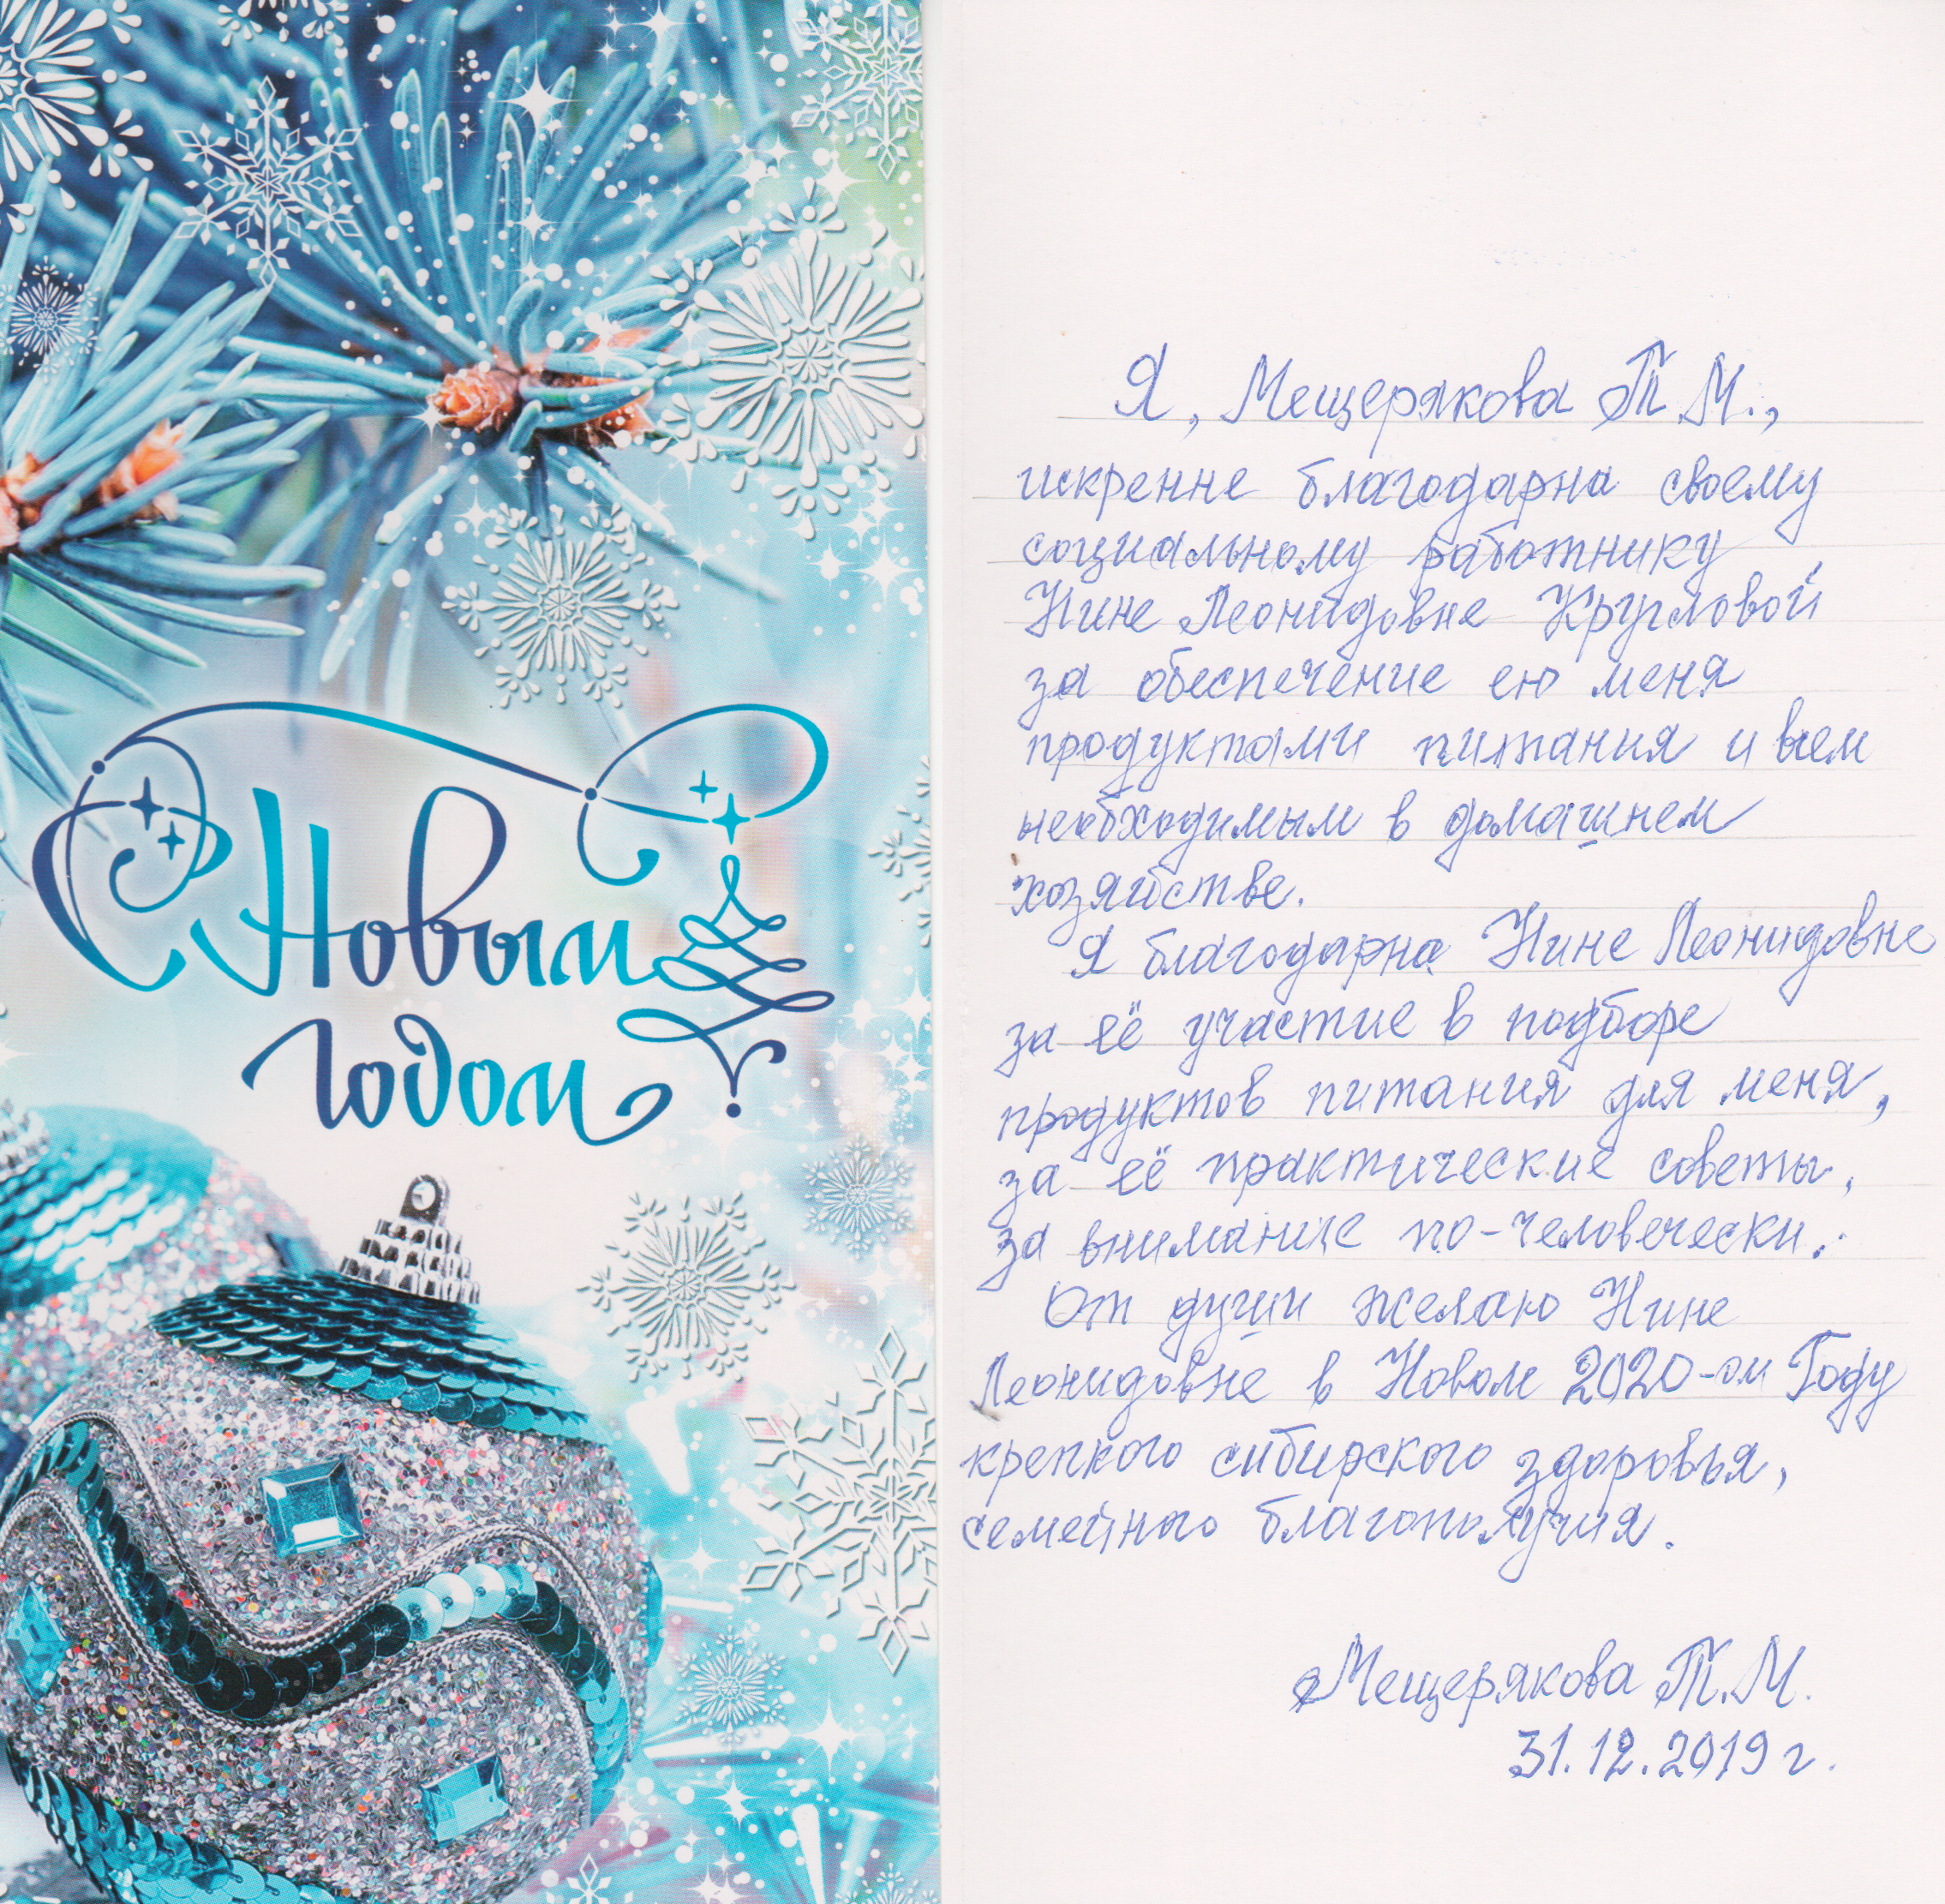 С Новым
годом
Я, Мещерякова Т.М.,
искренне благодарна своему
социальному работнику
Нине Леонидовне Кругловой
за обеспечение ею меня
продуктами питания и всем
необходимым в домашнем
хозяйстве.
Я благодарна Нине Леонидовне
за её участие в подборе
продуктов питания для меня,
за её практические советы,
за внимание по-человечески.
От души желаю Нине
Леонидовне в Новом 2020-ом Году
крепкого сибирского здоровья,
семейного благополучия.
Мещерякова Т.М.
31.12.2019 г.